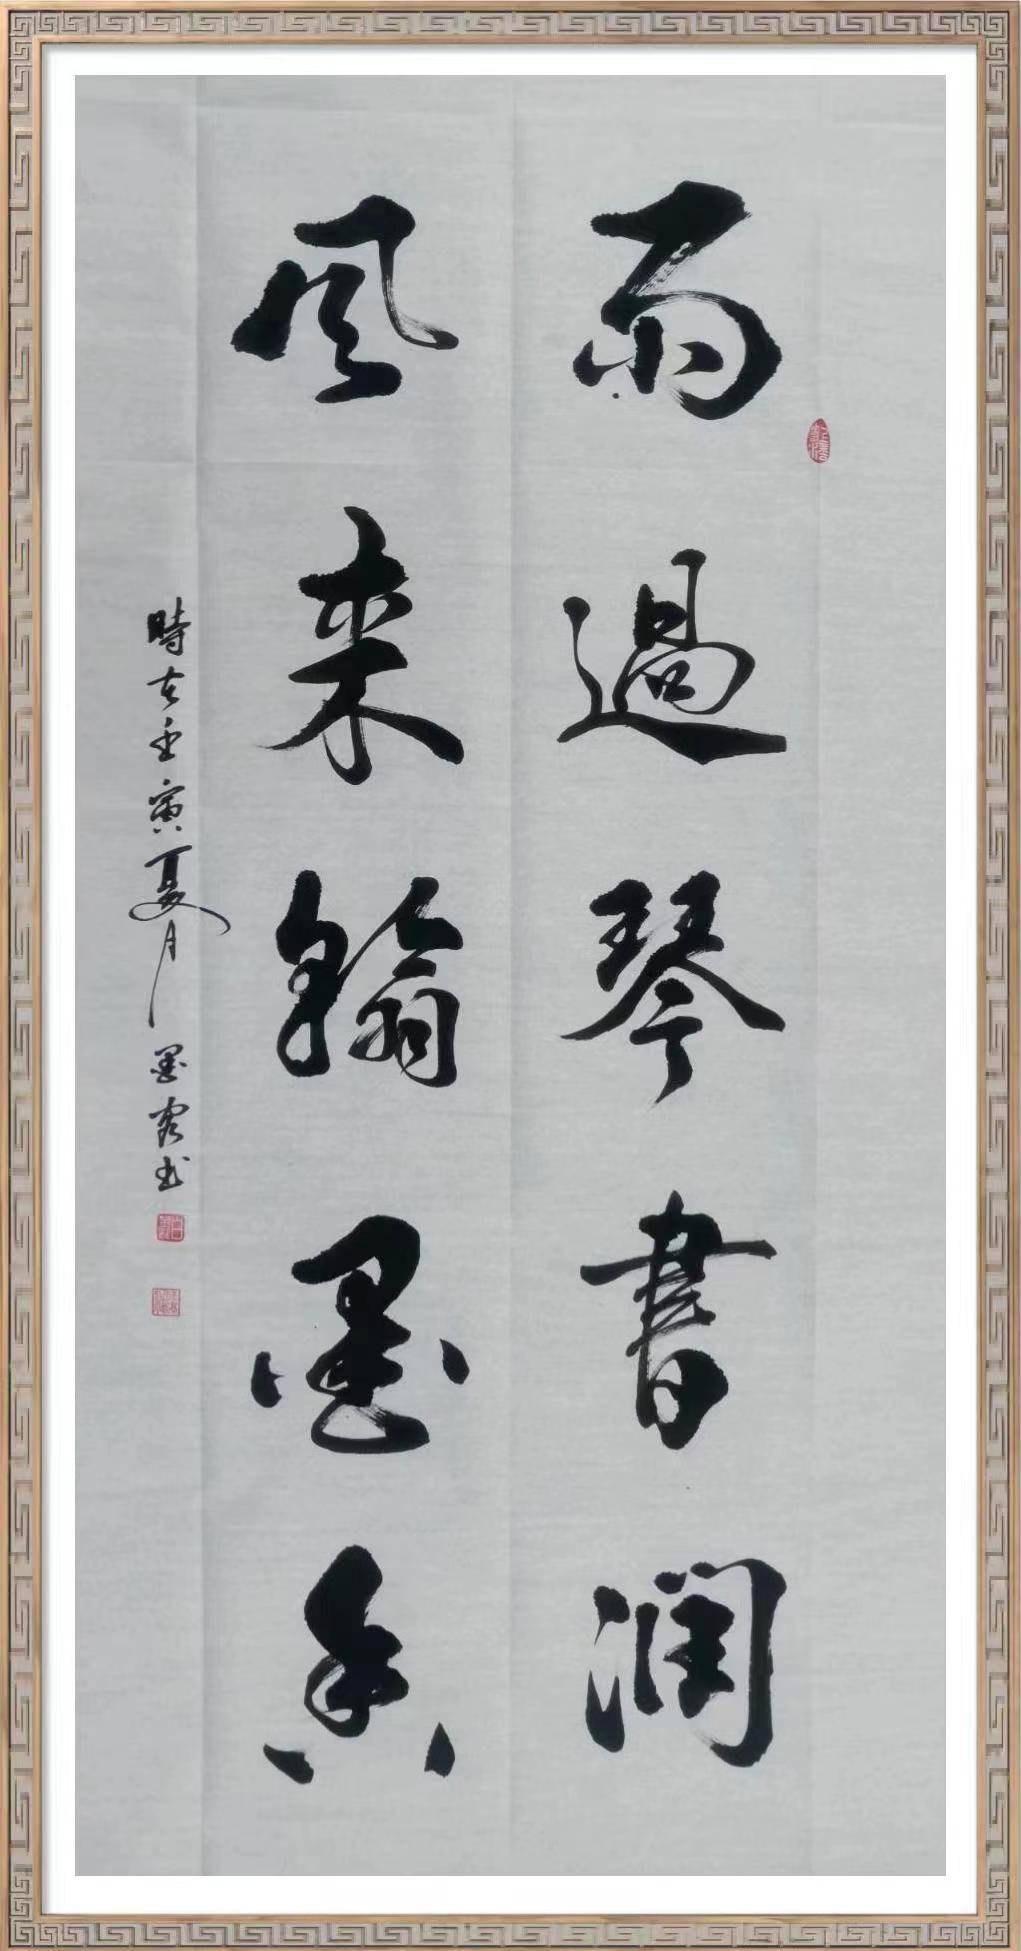 雨過琴書潤
風来翰墨香
時在壬寅夏月 墨客书